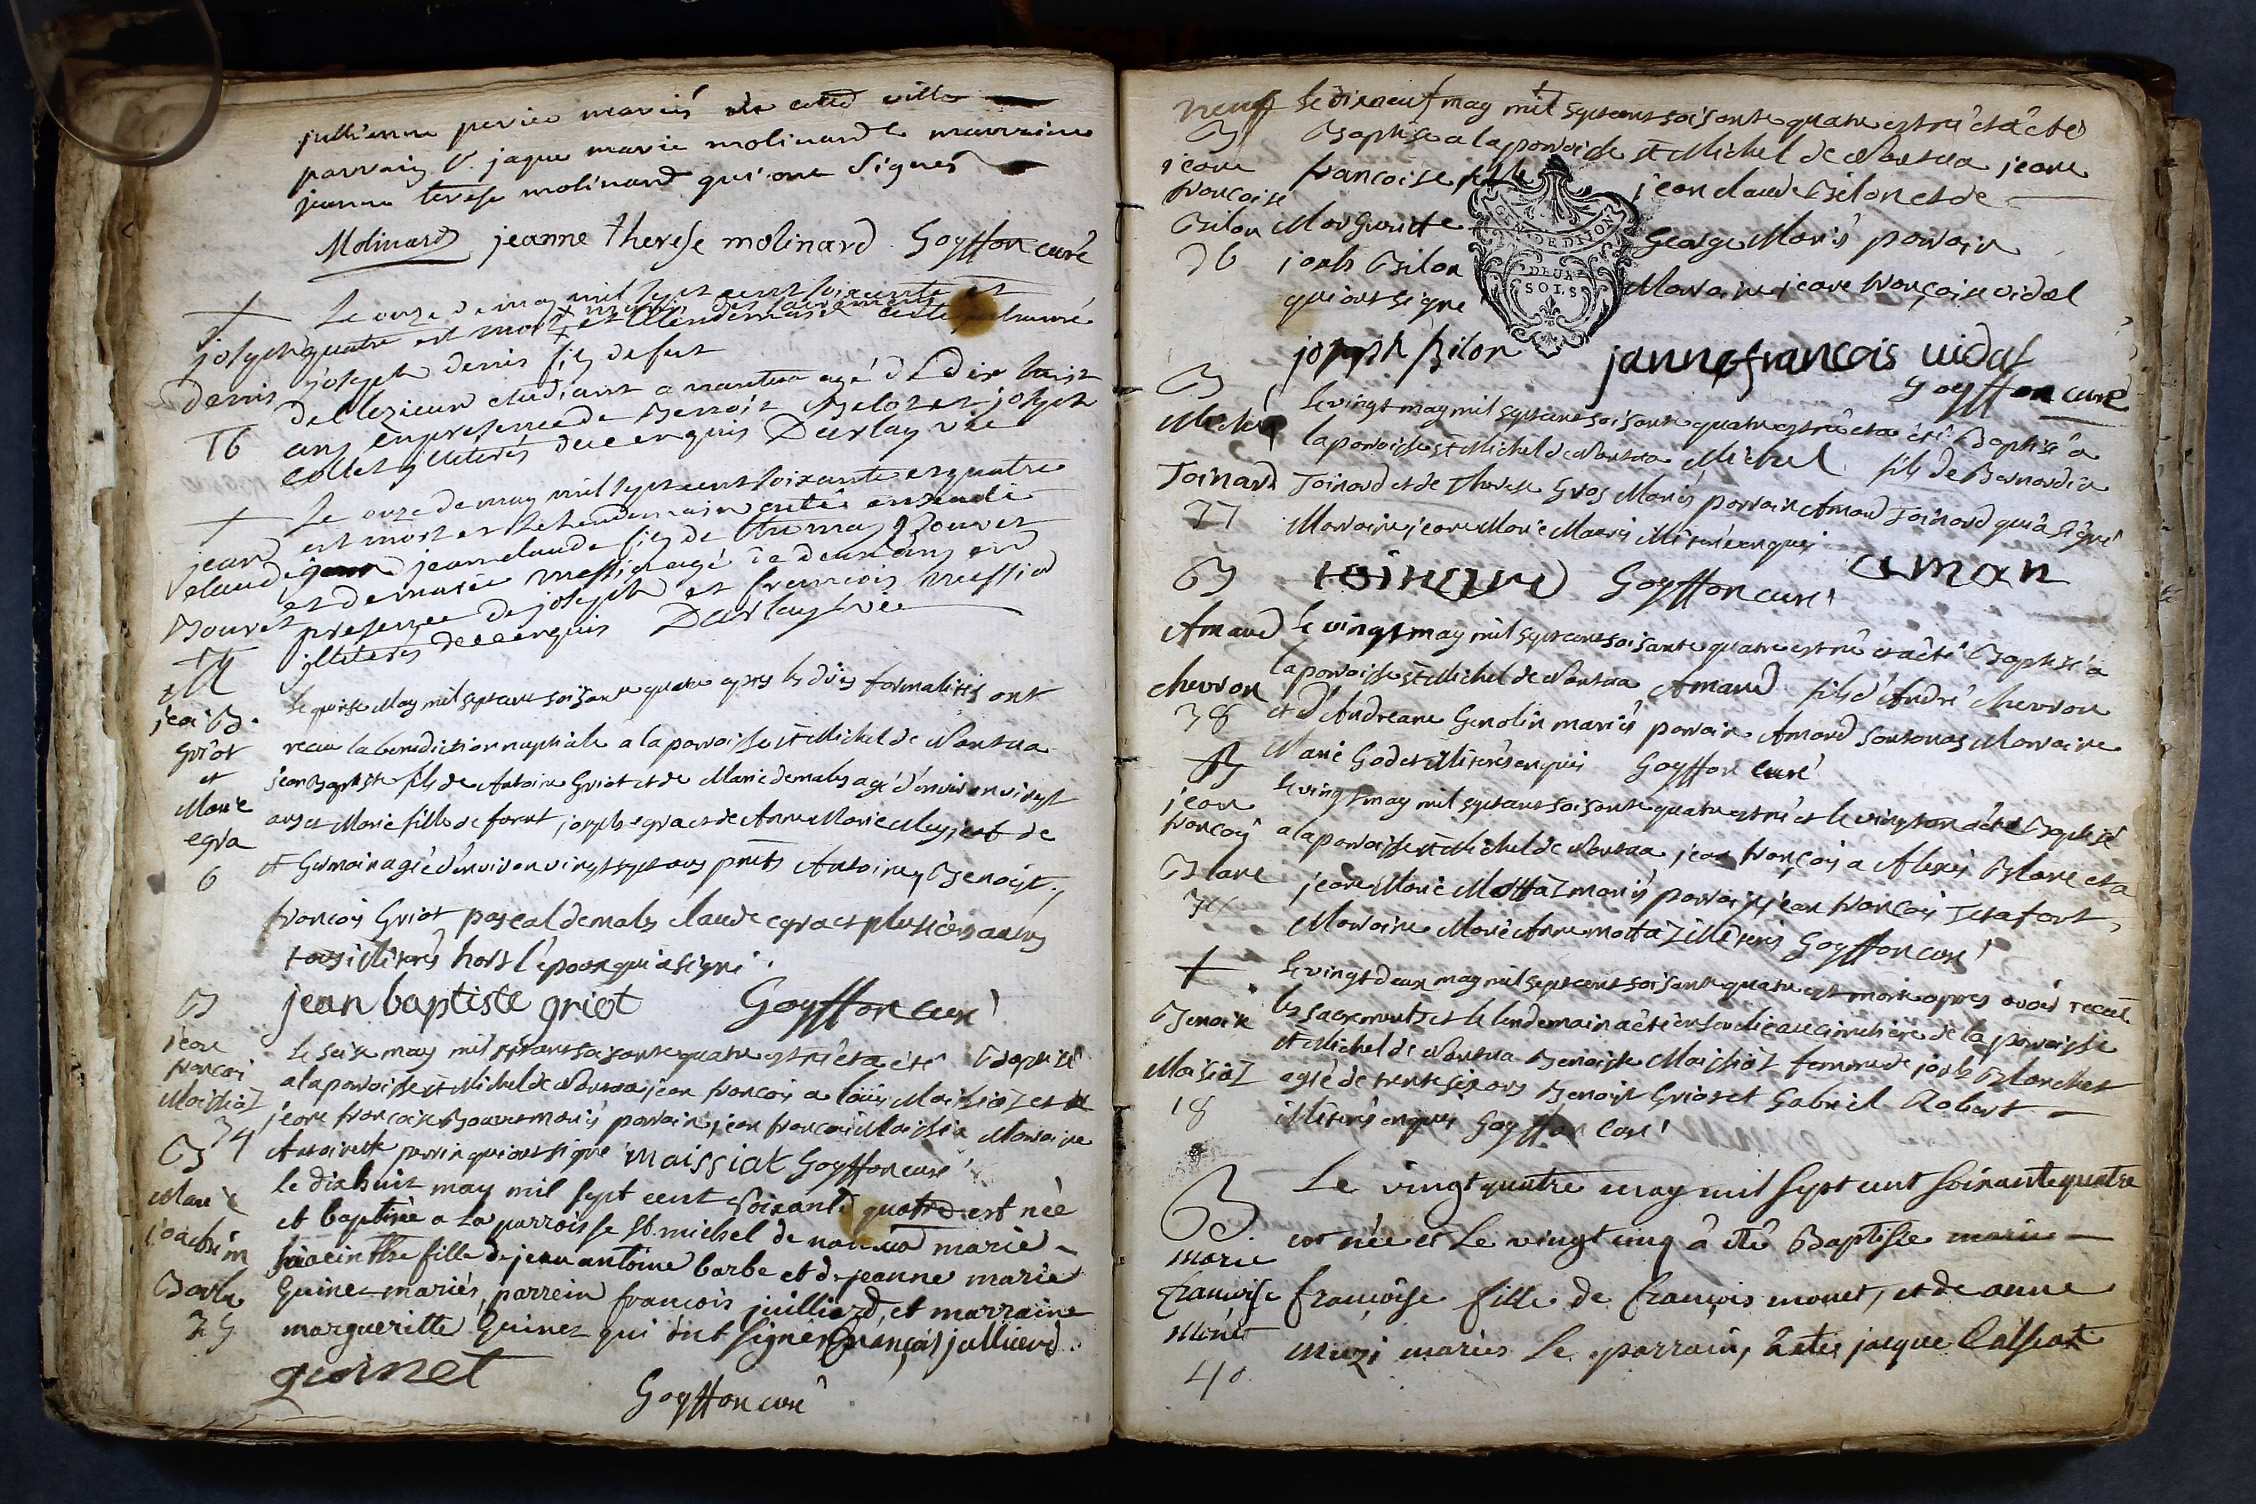 jullienne mariés de cette ville
parrain Sr. jaque marie molinard marraine
jeanne terese molinard qui ont signés
Molinard jeanne therese molinard Goyffon curé
+
joseph
denis
16
Le onze de may mil sept cent soixante et
quatre est mort munis des sacrements et le lendemain a été inhumé
joseph denis fils de fut
de lezieux etudiant a nantua agé de dix huit
ans en presence de Benoit Belot et joseph
collet illiterés de ce enquis Darlay vic
+
jean
claude
Bouvet
17
Le onze de may mil sept cent soixante et quatre
est mort et le lendemain a été enseveli
jean claude fils de thomas Bouvet
et de marie messia agé de deux ans en
presence de joseph et francois messia
illiterés de ce enquis Darlay vic
M
jean B.
Griot
et
Marie
egra
6
Le quinse May mil sept cent soisante quatre apres les dües formalités ont
recu la benediction nuptiale a la paroisse st Michel de Nantua
jean Baptiste fils de Antoine Griot et de Marie demales agé d'environ vingt
ans et Marie fille de feu joseph egra et de Anne Marie de
st Germain agée d'environ vingt sept ans pnts Antoine, Benoyt,
francois Griot pascal demales claude egra et plusieurs autres
tous illiterés hors l'epoux qui a signé
jean baptiste griot Goyffon curé
B
jean
francois
Maissiaz
34
Le seise may mil sept cent soisante quatre est né et a été Baptisé
a la paroisse st Michel de Nantua jean francois a loüis Maissiaz et a
jeane francoise Bouvet mariés parrain jean francois Maissia Marraine
Antoinette perrin qui ont signé maissiat Goyffon curé
B
Marie
joachim
Barbe
35
le dixhuit may mil sept cent soixante quatre est née
et baptisée a la parroisse st michel de nantua marie
hiacinthe fille de jean antoine barbe et de jeanne marie
Guinet mariés, parrein francois juillierd, et marraine
margueritte Guinet qui ont signer francois jullierd
guinet
Goyffon curé
neuf
B
jeane
francoise
Bilon
36
Le dixneuf may mil sept cent soisante quatre est née et a été
Baptisée a la paroisse st Michel de Nantua jeane
francoise fille jean claude Bilon et de
Marguerite George Mariés parrain
josph Bilon Marraine jeane françoise vidal
qui ont signé
GEN. DE DIJON
DEUX
SOLS
joseph Bilon jannefrancois uidal
Goyffon curé
B
Michel
Toinard
37
Le vingt may mil sept cent soisante quatre est né et a été Baptisé a
la paroisse st Michel de Nantua Michel fils de Bernardin
Toinard et de Therese Gros Mariés parrain Amand Toinard qui a signé
Marraine jeane Marie illiterée enquis
toinard Goyffon curé aman
B
Amand
chevron
38
Le vingt may mil sept cent soisante quatre est né et a été Baptisé a
la paroisse st Michel de Nantua Amand fils d'André chevron
et d'Andreane Genolin mariés parrain Amand Santonas Marraine
Marie Godet illiterés enquis Goyffon curé
B
jean
francois
Blanc
39
Le vingt may mil sept cent soisante quatre est né et le vingt un a été Baptisé
a la paroisse st Michel de Nantua jean françois a Alexis Blanc et a
jeane Marie Mottaz mariés parrain jean francois
Marraine Marie Anne mottaz illiterés Goyffon curé
+
Benoite
Maisiaz
18
Le vingt deux may mil sept cent soisante quatre est morte apres avoir recu
les sacrements et le lendemain a été ensevelie au cimetiere de la paroisse
st Michel de Nantua Benoiste Maissiaz femme de josph Blanchet
agée de trente six ans Benoist Griot et Gabriel Robert
illiterés enquis Goyffon Curé
B
marie
francoise
monet
40
Le vingt quatre may mil sept cent soixante quatre
est née et Le vingt cinq â été Baptisée marie
françoise fille de françois monet, et de anne
muzi mariés Le parrain, a été jacque